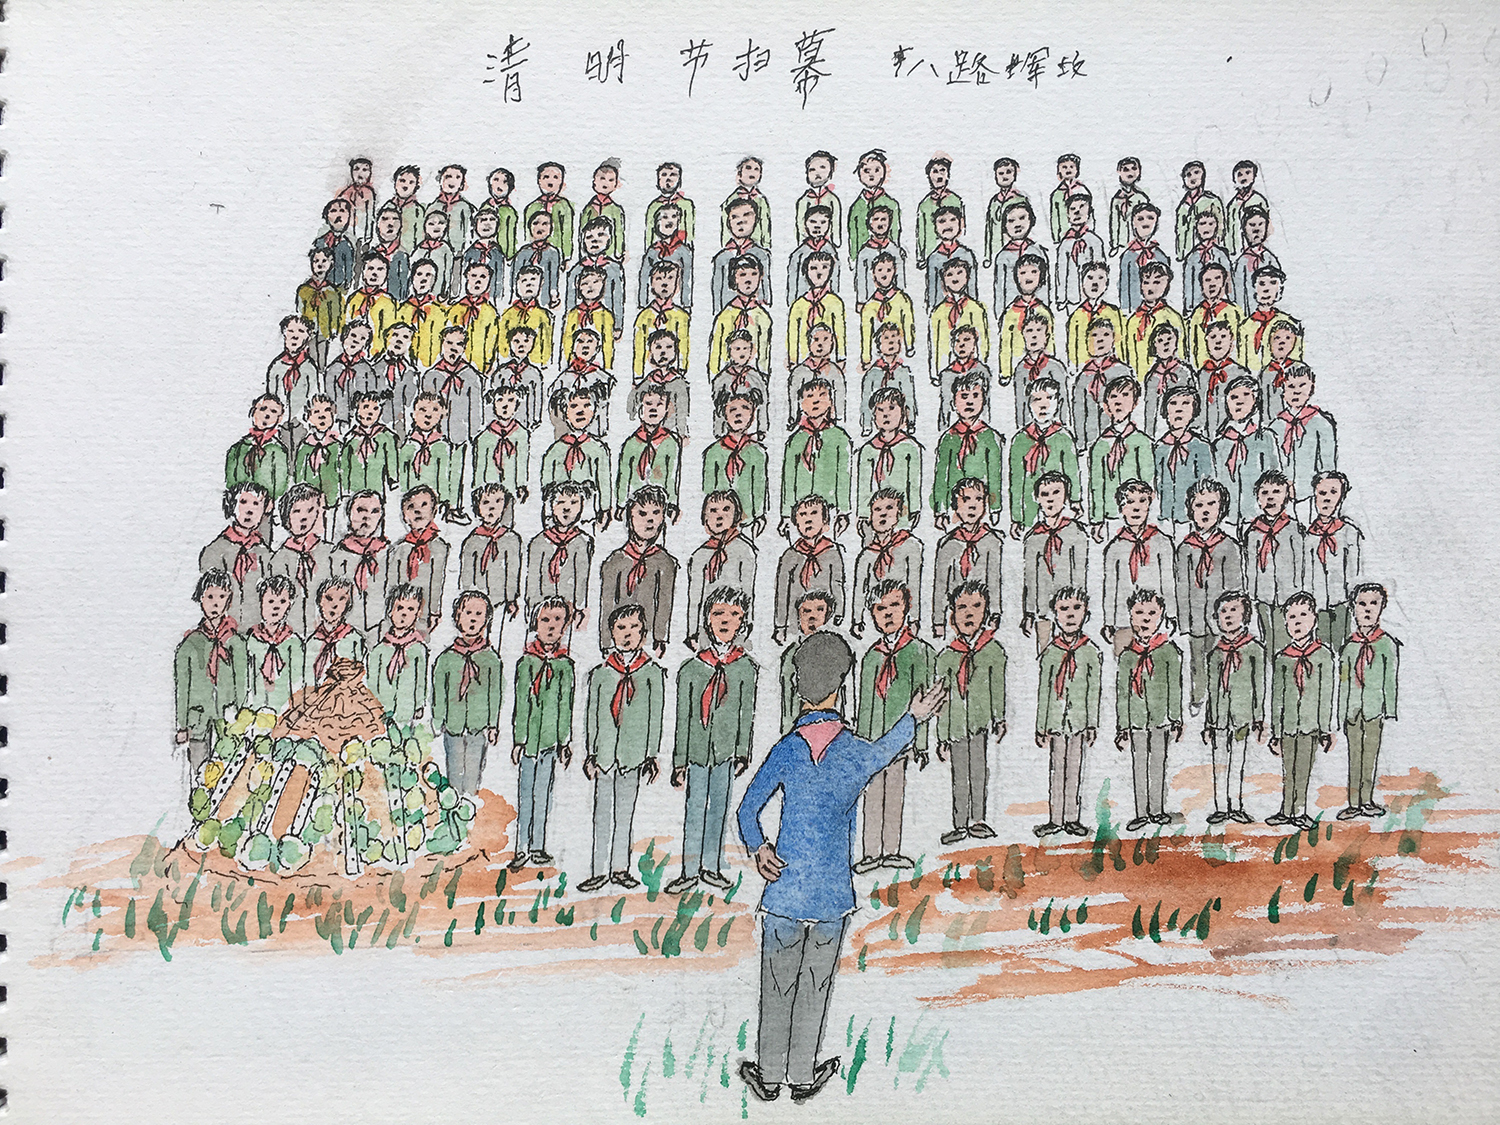 清明节扫幕 八路军坟